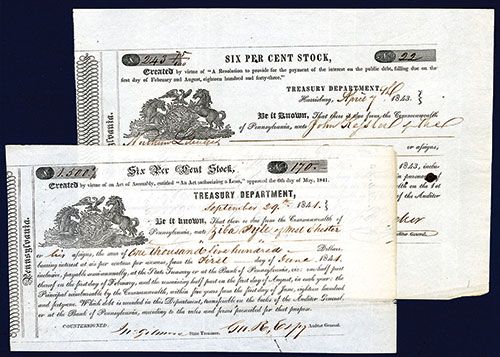 243 75/100
SIX PER CENT STOCK,
22
Created by virtue of "A Resolution to provide for the payment of the interest on the public debt, falling due on the
first day of February and August, eighteen hundred and forty-three."
TREASURY DEPARTMENT,
Harrisburg, April 7 1843.
Be it Known, That there is due from the Commonwealth
of Pennsylvania, unto John
or assigns,
Auditor General.
Pennsylvania.
$1,500
Six Per Cent Stock,
No 170.
Created by virtue of an Act of Assembly, entitled "An Act authorizing a Loan," approved the 6th day of May, 1841.
TREASURY DEPARTMENT,
September 29th 1841.
Be it known, That there is due from the Commonwealth of
Pennsylvania, unto Ziba Pyle of West Chester
or his assigns, the sum of One thousand five hundred Dollars,
bearing interest at six per centum per annum, from the First day of June 1841,
inclusive, payable semi-annually, at the State Treasury or at the Bank of Pennsylvania, viz: one-half part
thereof on the first day of February, and the remaining half part on the first day of August, in each year; the
Principal reimbursable by the Commonwealth, within five years from the first day of June, eighteen hundred
and forty-one. Which debt is recorded in this Department, transferable on the books of the Auditor General,
or at the Bank of Pennsylvania, according to the rules and forms provided for that purpose.
COUNTERSIGNED, Jn. Gilmore State Treasurer. Geo. R. Espy Auditor General.